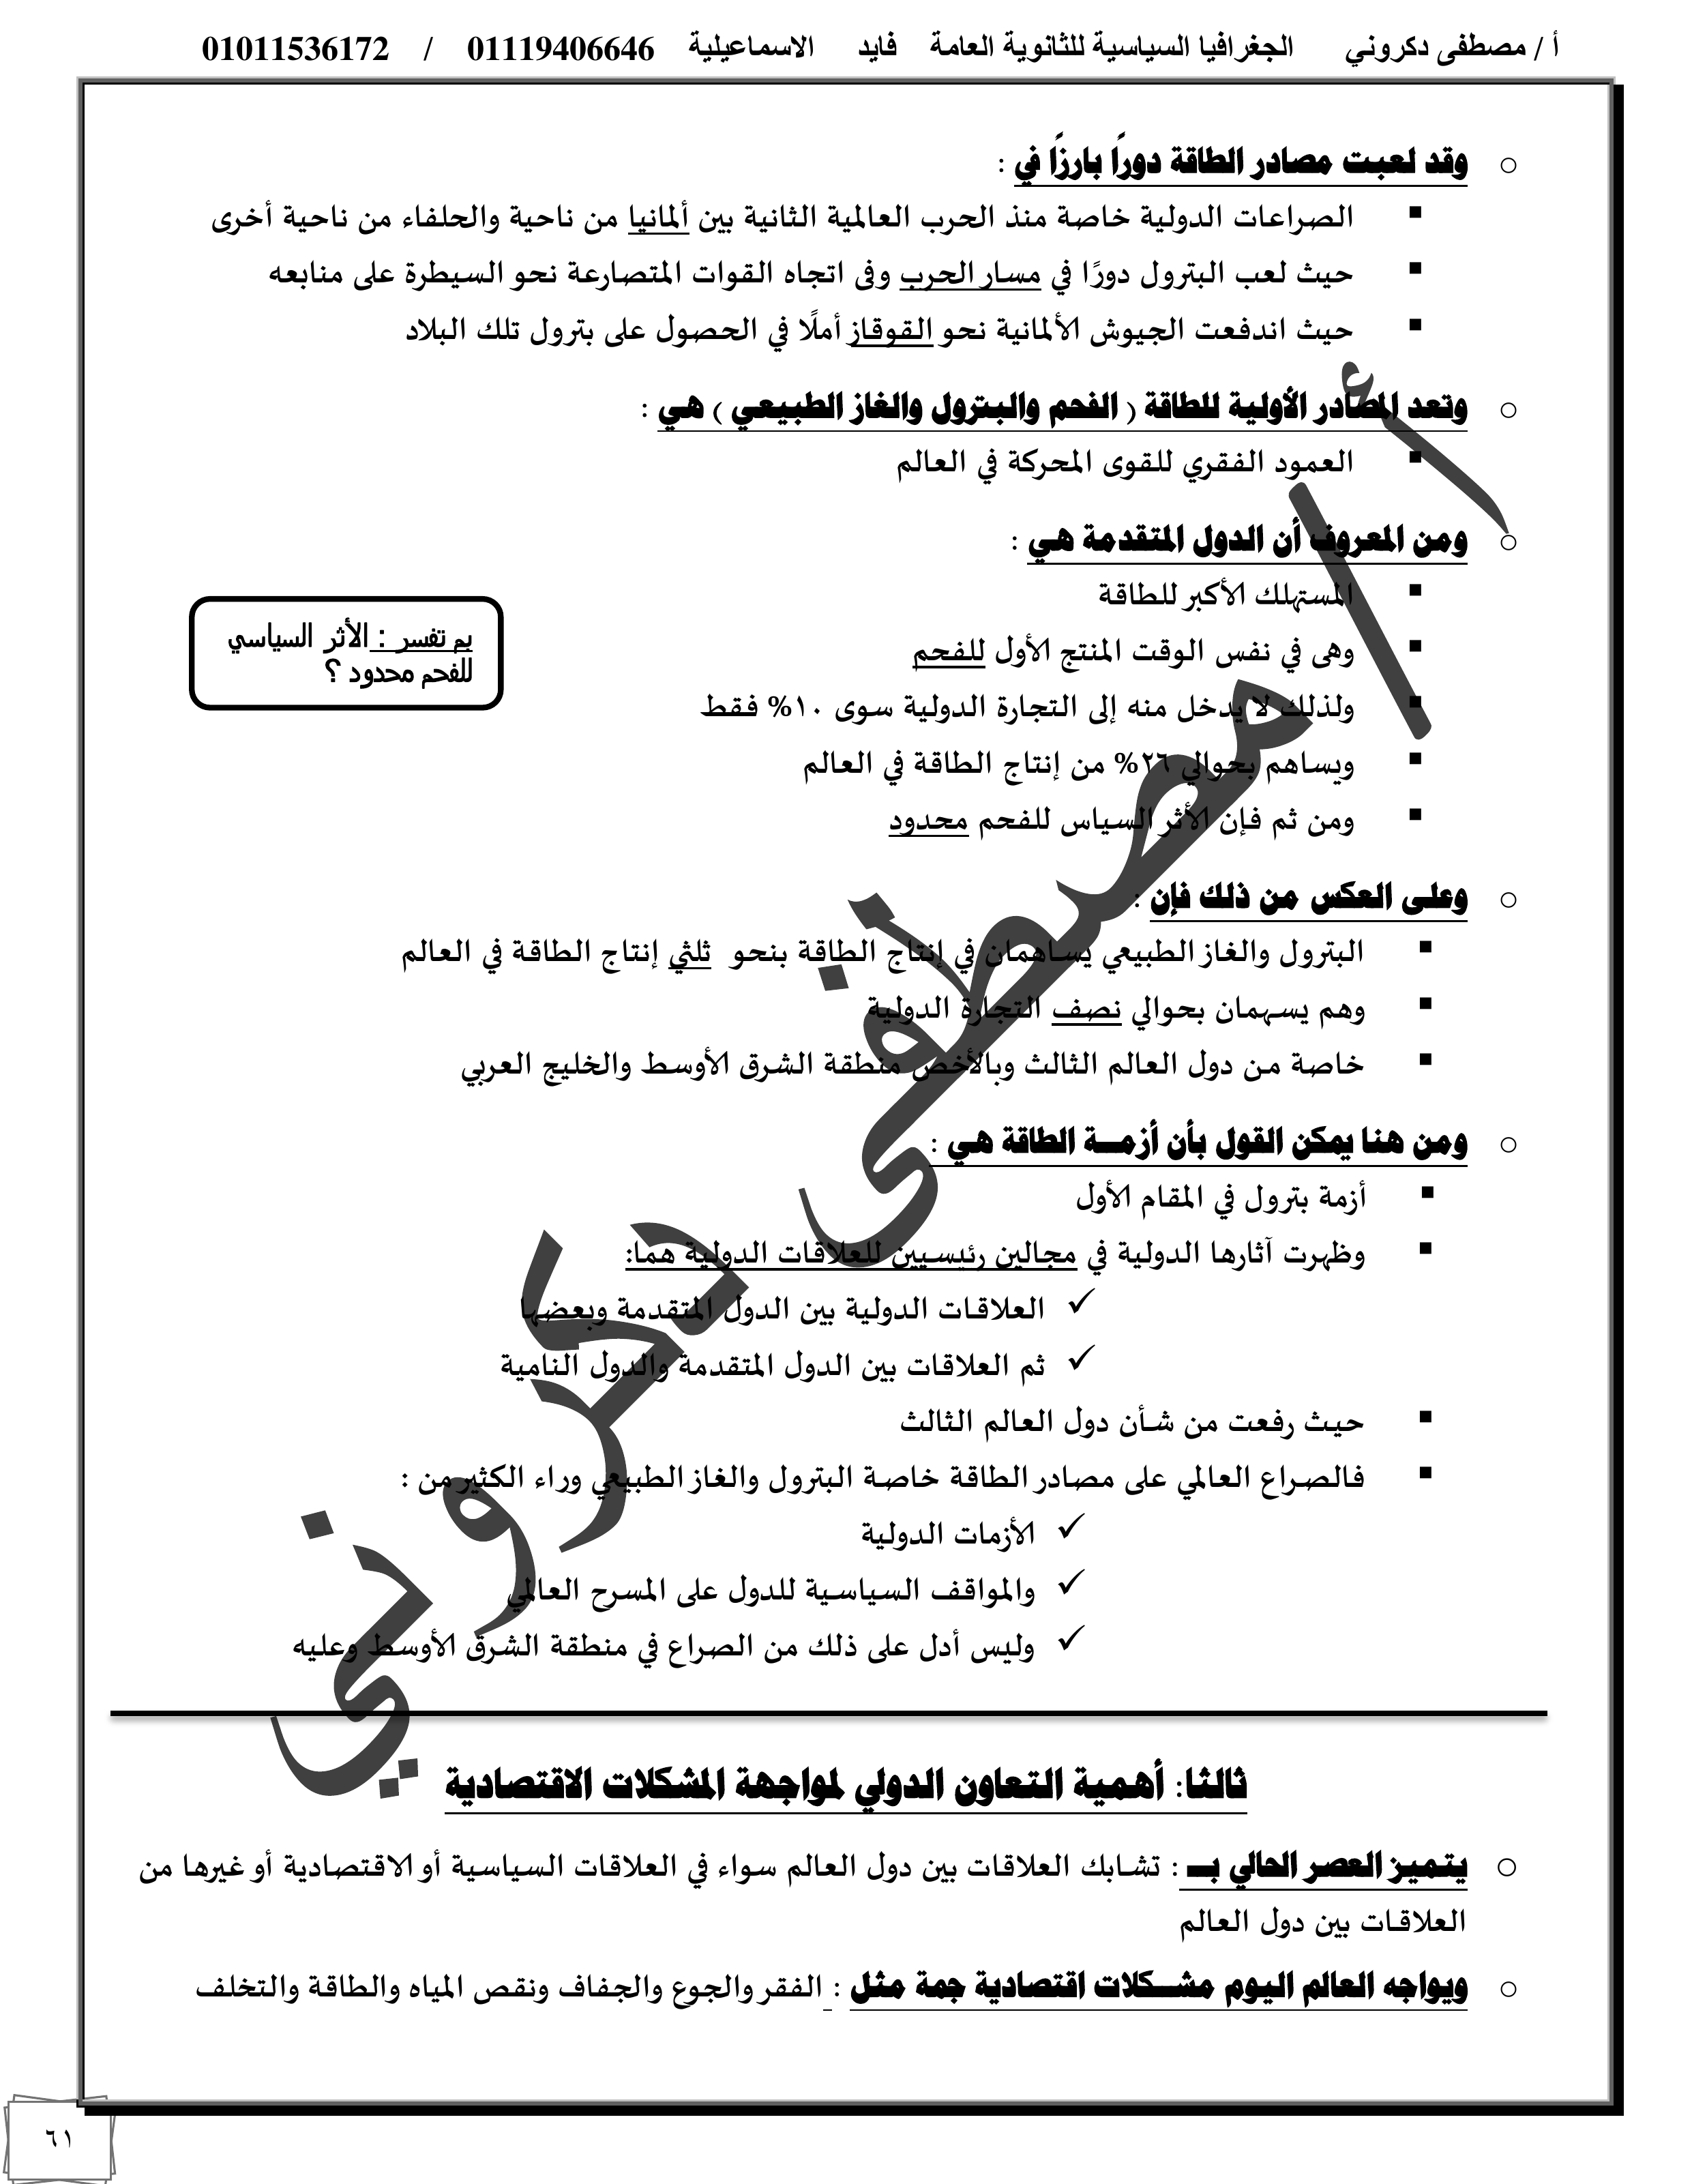 أ / مصطفى دكروني الجغرافيا السياسية للثانوية العامة فايد الاسماعيلية 01119406646 / 01011536172
○ وقد لعبت مصادر الطاقة دورًا بارزًا في :
▪ الصراعات الدولية خاصة منذ الحرب العالمية الثانية بين ألمانيا من ناحية والحلفاء من ناحية أخرى
▪ حيث لعب البترول دورًا في مسار الحرب وفى اتجاه القوات المتصارعة نحو السيطرة على منابعه
▪ حيث اندفعت الجيوش الألمانية نحو القوقاز أملًا في الحصول على بترول تلك البلاد
○ وتعد المصادر الأولية للطاقة ( الفحم والبترول والغاز الطبيعي ) هي :
▪ العمود الفقري للقوى المحركة في العالم
○ ومن المعروف أن الدول المتقدمة هي :
▪ المستهلك الأكبر للطاقة
▪ وهى في نفس الوقت المنتج الأول للفحم
▪ ولذلك لا يدخل منه إلى التجارة الدولية سوى ١٠% فقط
▪ ويساهم بحوالي ٢٦% من إنتاج الطاقة في العالم
▪ ومن ثم فإن الأثر السياس للفحم محدود
بم تفسر : الأثر السياسي
للفحم محدود ؟
○ وعلى العكس من ذلك فإن :
▪ البترول والغاز الطبيعي يساهمان في إنتاج الطاقة بنحو ثلثي إنتاج الطاقة في العالم
▪ وهم يسهمان بحوالي نصف التجارة الدولية
▪ خاصة من دول العالم الثالث وبالأخص منطقة الشرق الأوسط والخليج العربي
○ ومن هنا يمكن القول بأن أزمـــة الطاقة هي :
▪ أزمة بترول في المقام الأول
▪ وظهرت آثارها الدولية في مجالين رئيسيين للعلاقات الدولية هما:
✓ العلاقات الدولية بين الدول المتقدمة وبعضها
✓ ثم العلاقات بين الدول المتقدمة والدول النامية
▪ حيث رفعت من شأن دول العالم الثالث
▪ فالصراع العالمي على مصادر الطاقة خاصة البترول والغاز الطبيعي وراء الكثير من :
✓ الأزمات الدولية
✓ والمواقف السياسية للدول على المسرح العالمي
✓ وليس أدل على ذلك من الصراع في منطقة الشرق الأوسط وعليه
ثالثا: أهمية التعاون الدولي لمواجهة المشكلات الاقتصادية
○ يتميز العصر الحالي بــ : تشابك العلاقات بين دول العالم سواء في العلاقات السياسية أو الاقتصادية أو غيرها من
العلاقات بين دول العالم
○ ويواجه العالم اليوم مشـــكلات اقتصادية جمة مثل : الفقر والجوع والجفاف ونقص المياه والطاقة والتخلف
أ / مصطفى دكروني
٦١